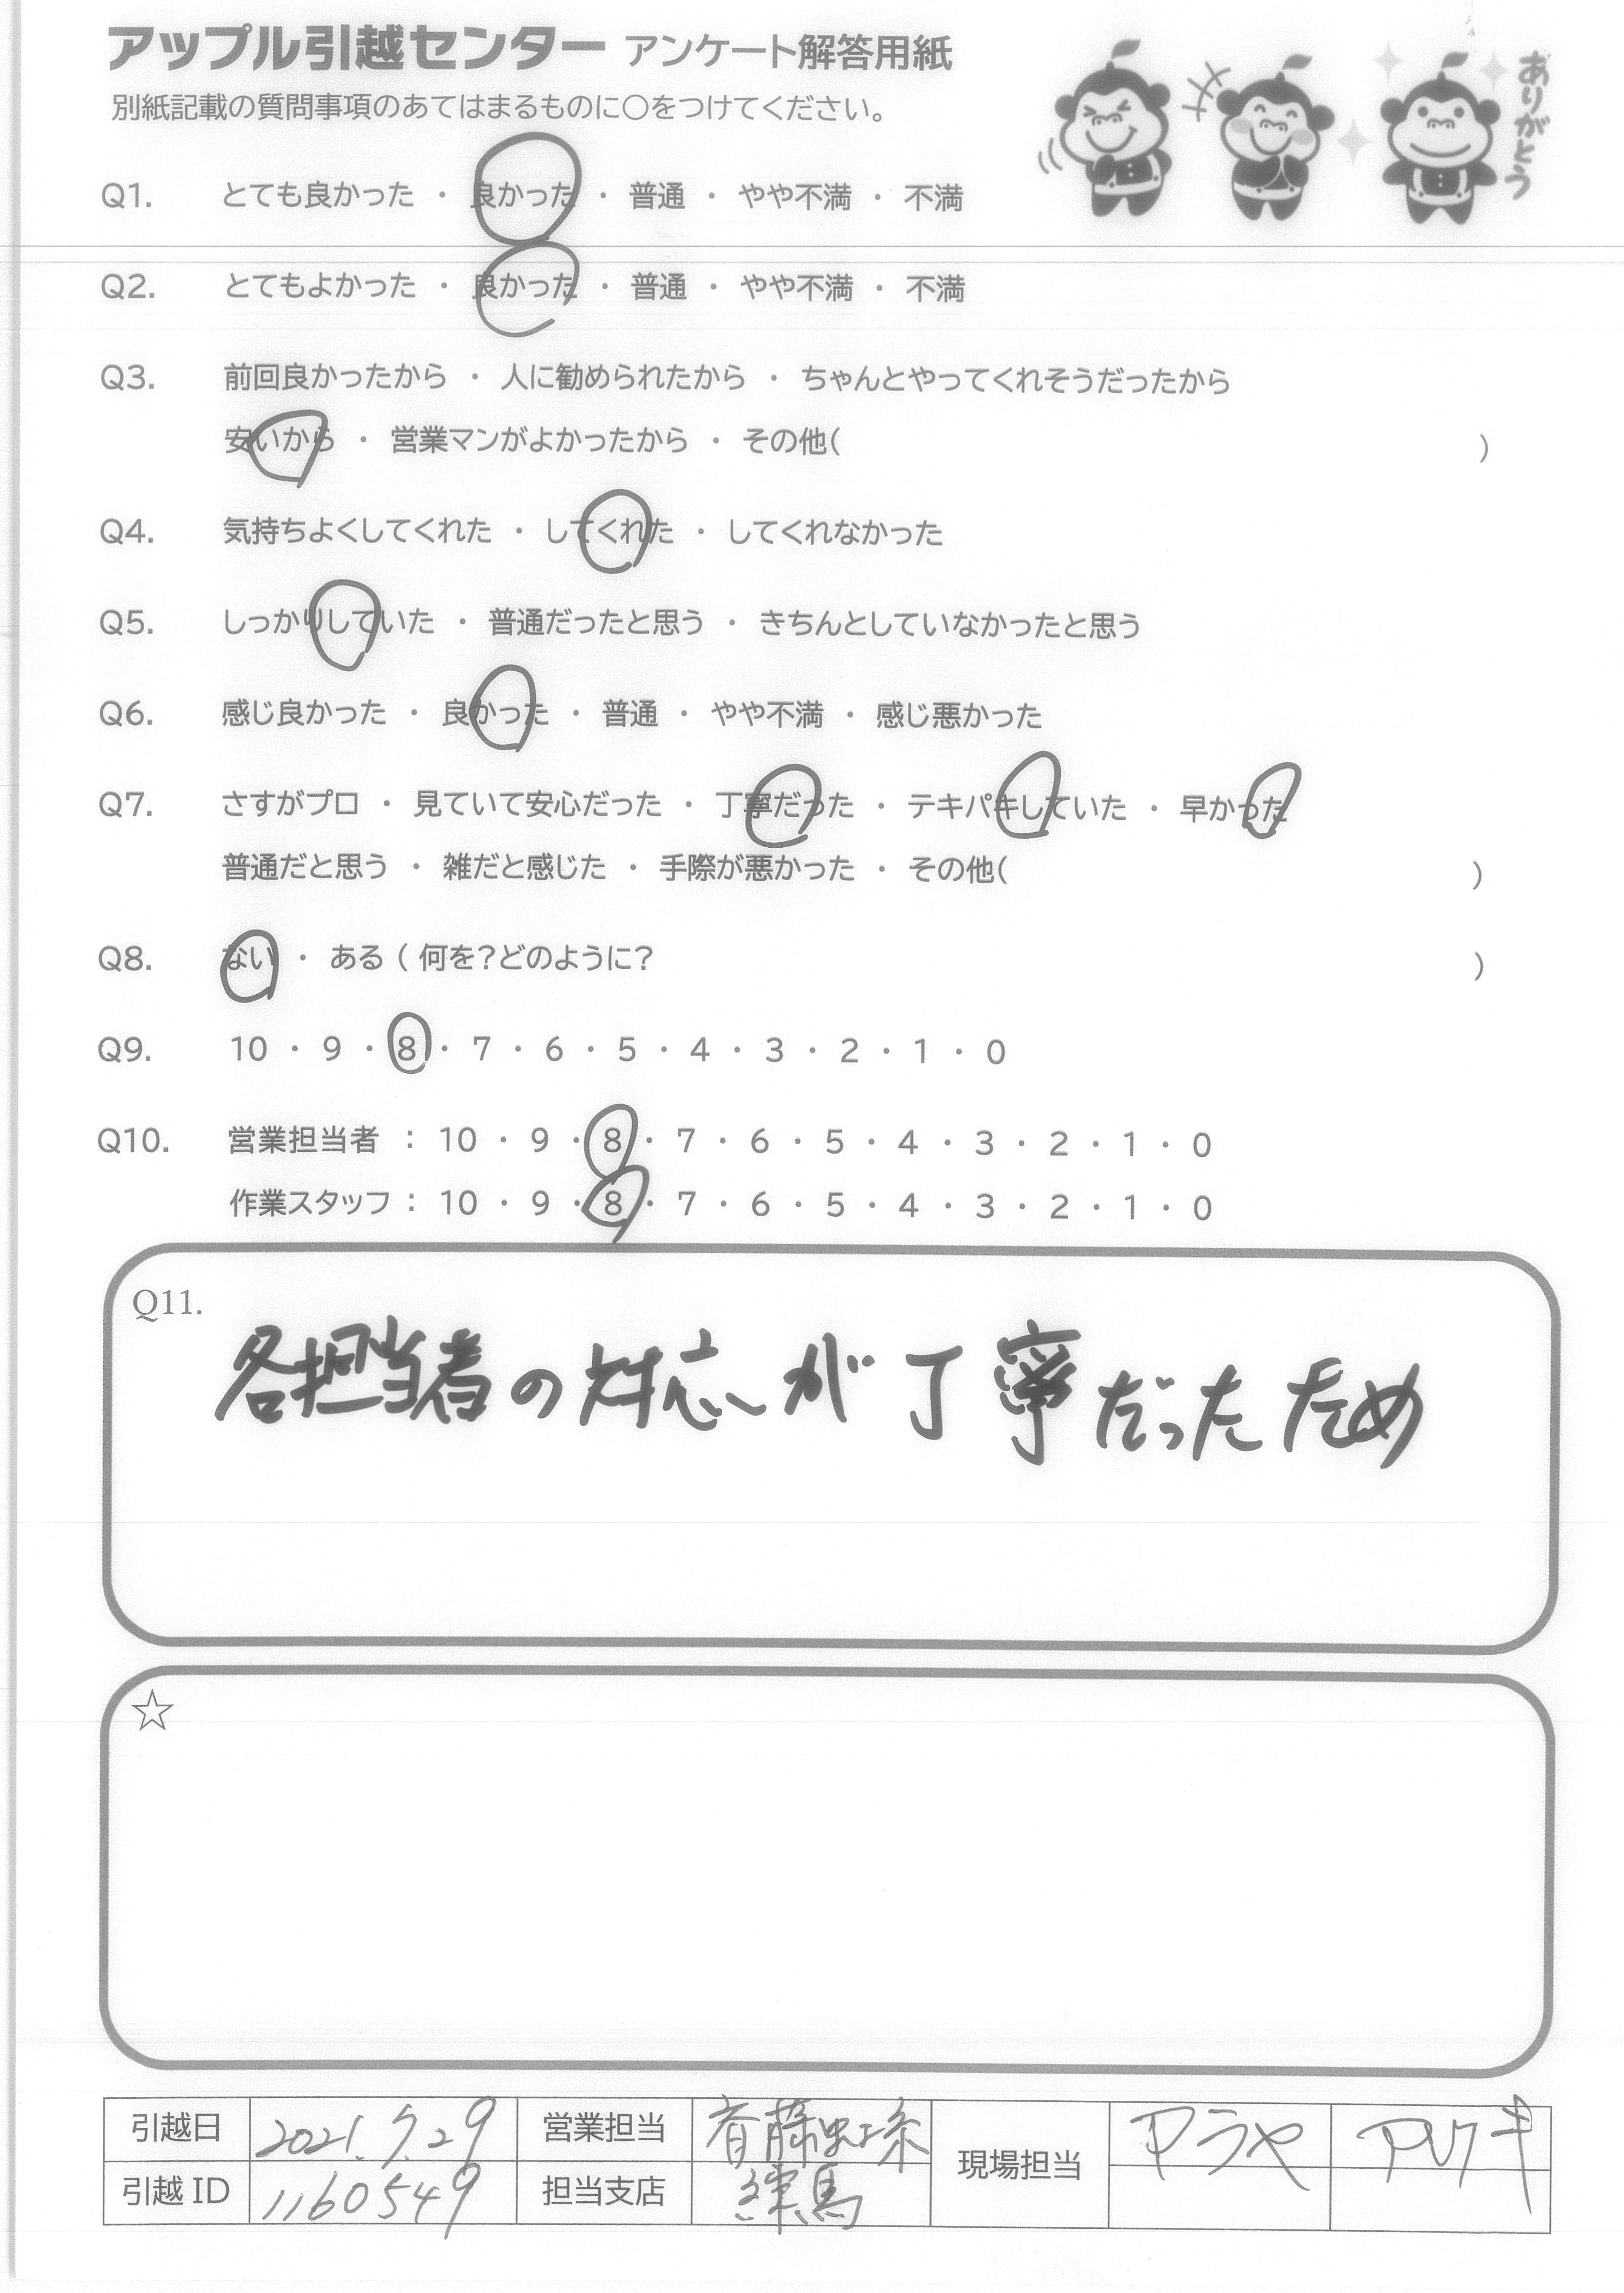 アップル引越センター アンケート解答用紙
別紙記載の質問事項のあてはまるものに〇をつけてください。
ありがとう
Q1. とても良かった ・ 良かった ・ 普通 ・ やや不満 ・ 不満
Q2. とてもよかった ・ 良かった ・ 普通 ・ やや不満 ・ 不満
Q3. 前回良かったから ・ 人に勧められたから ・ ちゃんとやってくれそうだったから
安いから ・ 営業マンがよかったから ・ その他( )
Q4. 気持ちよくしてくれた ・ してくれた ・ してくれなかった
Q5. しっかりしていた ・ 普通だったと思う ・ きちんとしていなかったと思う
Q6. 感じ良かった ・ 良かった ・ 普通 ・ やや不満 ・ 感じ悪かった
Q7. さすがプロ ・ 見ていて安心だった ・ 丁寧だった ・ テキパキしていた ・ 早かった
普通だと思う ・ 雑だと感じた ・ 手際が悪かった ・ その他( )
Q8. ない ・ ある ( 何を?どのように? )
Q9. 10 ・ 9 ・ 8 ・ 7 ・ 6 ・ 5 ・ 4 ・ 3 ・ 2 ・ 1 ・ 0
Q10. 営業担当者 : 10 ・ 9 ・ 8 ・ 7 ・ 6 ・ 5 ・ 4 ・ 3 ・ 2 ・ 1 ・ 0
作業スタッフ : 10 ・ 9 ・ 8 ・ 7 ・ 6 ・ 5 ・ 4 ・ 3 ・ 2 ・ 1 ・ 0
Q11.
各担当者の対応が丁寧だったため
☆
引越日 2021.7.29 営業担当 現場担当 アラヤ
引越ID 1160549 担当支店 練馬